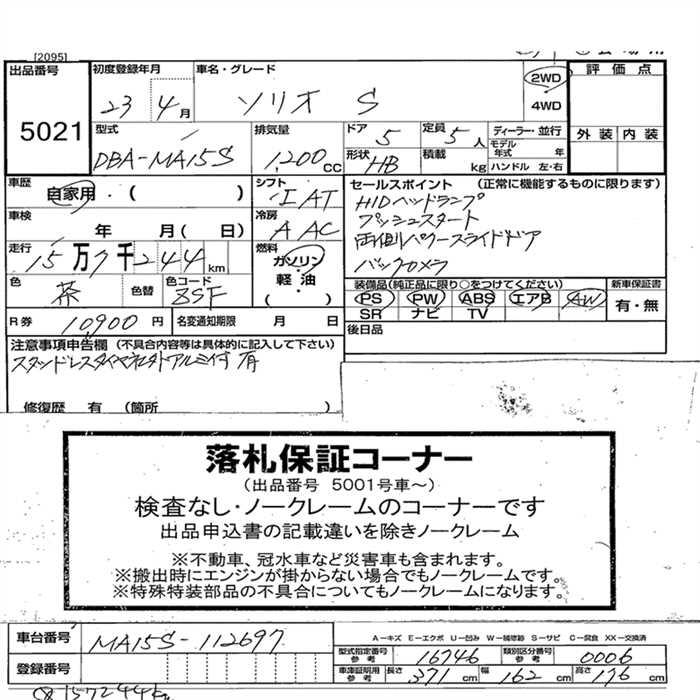 [2095]
出品番号 5021
初度登録年月 23 4月
車名・グレード ソリオ S
2WD
4WD
評価点
外装 内装
型式 DBA-MA15S
排気量 1,200 CC
ドア 5
定員 5人
形状 HB
積載 kg
ディーラー・並行
モデル年式 年
ハンドル 左・右
車歴 自家用・( )
シフト IAT
セールスポイント (正常に機能するものに限ります)
HIDヘッドランプ
プッシュスタート
両側パワースライドドア
バックカメラ
車検 年 月( 日)
冷房 AAC
走行 15万7千244km
燃料 ガソリン・軽油・( )
色 茶
色替
色コード ZSF
装備品(純正品に限り○をつけてください)
PS PW ABS エアB AW
SR ナビ TV
新車保証書 有・無
R券 10900円
名変通知期限 月 日
後日品
注意事項申告欄 (不具合内容等は具体的に記入して下さい)
スタッドレスタイヤ社外アルミ付 有
修復歴 有 (箇所 )
落札保証コーナー
(出品番号 5001号車~)
検査なし・ノークレームのコーナーです
出品申込書の記載違いを除きノークレーム
※不動車、冠水車など災害車も含まれます。
※搬出時にエンジンが掛からない場合でもノークレームです。
※特殊特装部品の不具合についてもノークレームになります。
車台番号 MA15S-112697
A-キズ E-エクボ U-凹み W-補修跡 S-サビ C-腐食 XX-交換済
型式指定番号参考 16746
類別区分番号参考 0006
登録番号
車庫証明用参考 長さ 371cm 幅 162cm 高さ 176cm
157244km